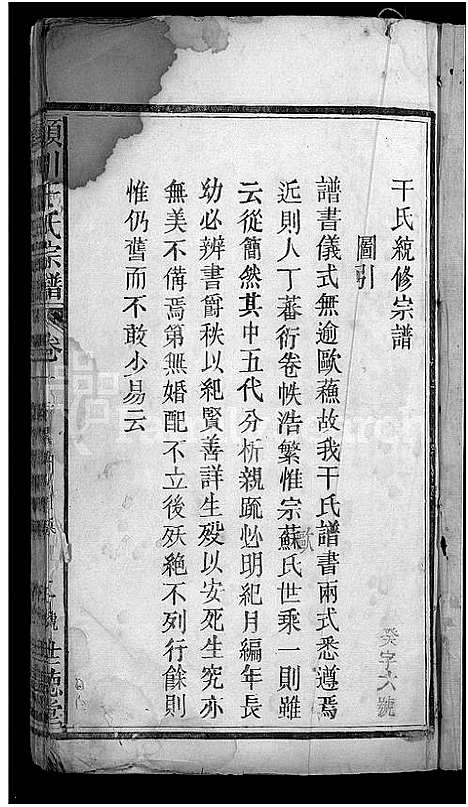 干氏統修宗譜
圖引
譜書儀式無逾歐蘓故我干氏譜書兩式悉遵焉
近則人丁蕃衍卷帙浩繁惟宗蘇氏世乘一則雖
歐
云從簡然其中五代分析親疏必明紀月編年長
幼必辨書爵秩以紀賢善詳生殁以安死生究亦
無美不備焉第無婚配不立後殀絶不列行餘則
惟仍舊而不敢少易云
癸字六號
川干氏宗譜
卷一
世德堂